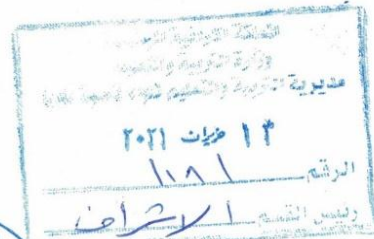 وزارة التربية والتعليم
مديرية التربية والتعليم
١٣ حزيران ٢٠٢١
الرقم ١١٨١
رئيس القسم الاشراف